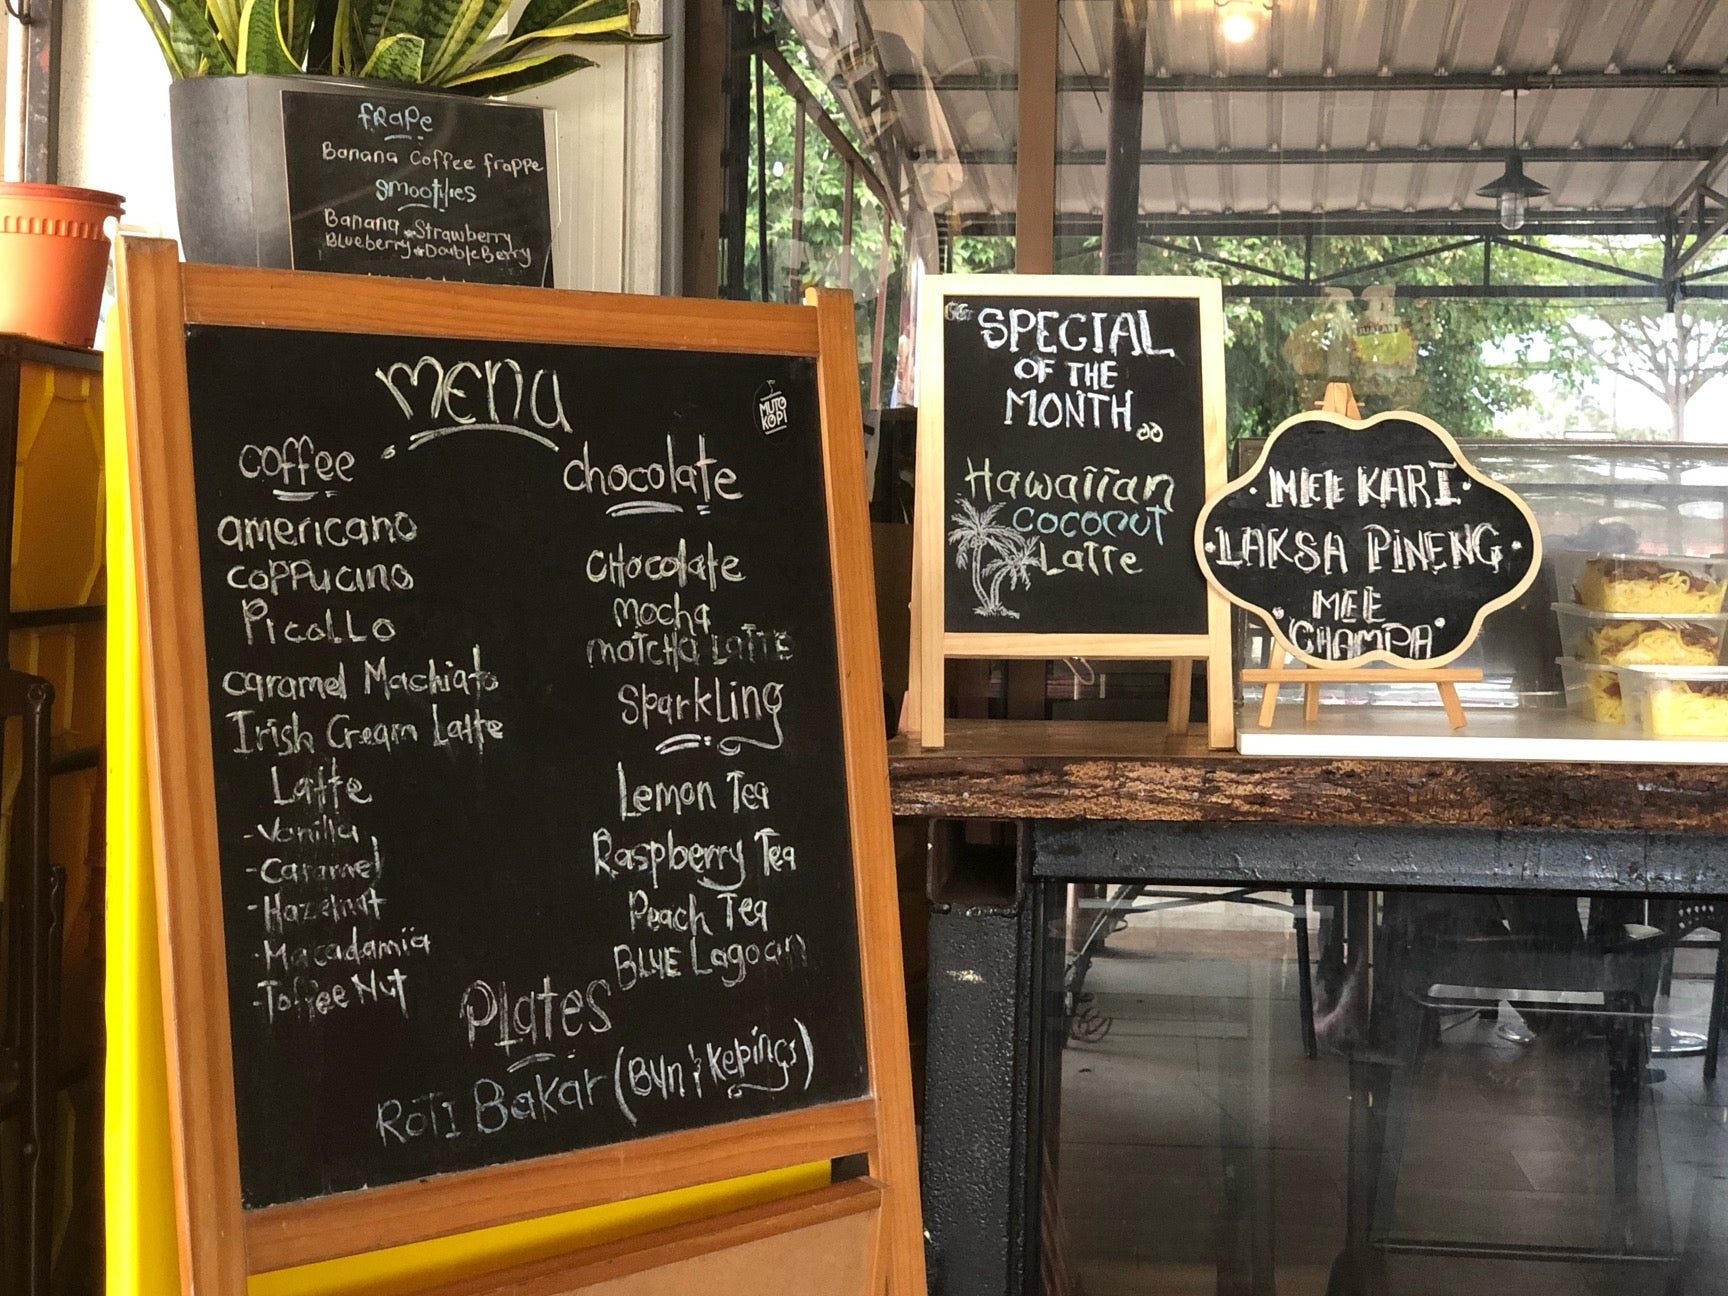 fRape
Banana Coffee frappe
smoothies
Banana * Strawberry
Blueberry * Double Berry
menu
MUTO
KOPI
coffee
americano
coppucino
Picollo
caramel Machiato
Irish Cream Latte
Latte
- Vanilla
- Caramel
- Hazelnut
- Macadamia
- Toffee Nut
chocolate
CHocolate
Mocha
matcha LATTE
Sparkling
Lemon Tea
Raspberry Tea
Peach Tea
BLUE Lagoon
Plates
ROTI Bakar (Bun & Keping)
SPECIAL
OF THE
MONTH
Hawaiian
coconut
Latte
MEE KARI
LAKSA PINENG
MEE
CHAMPA